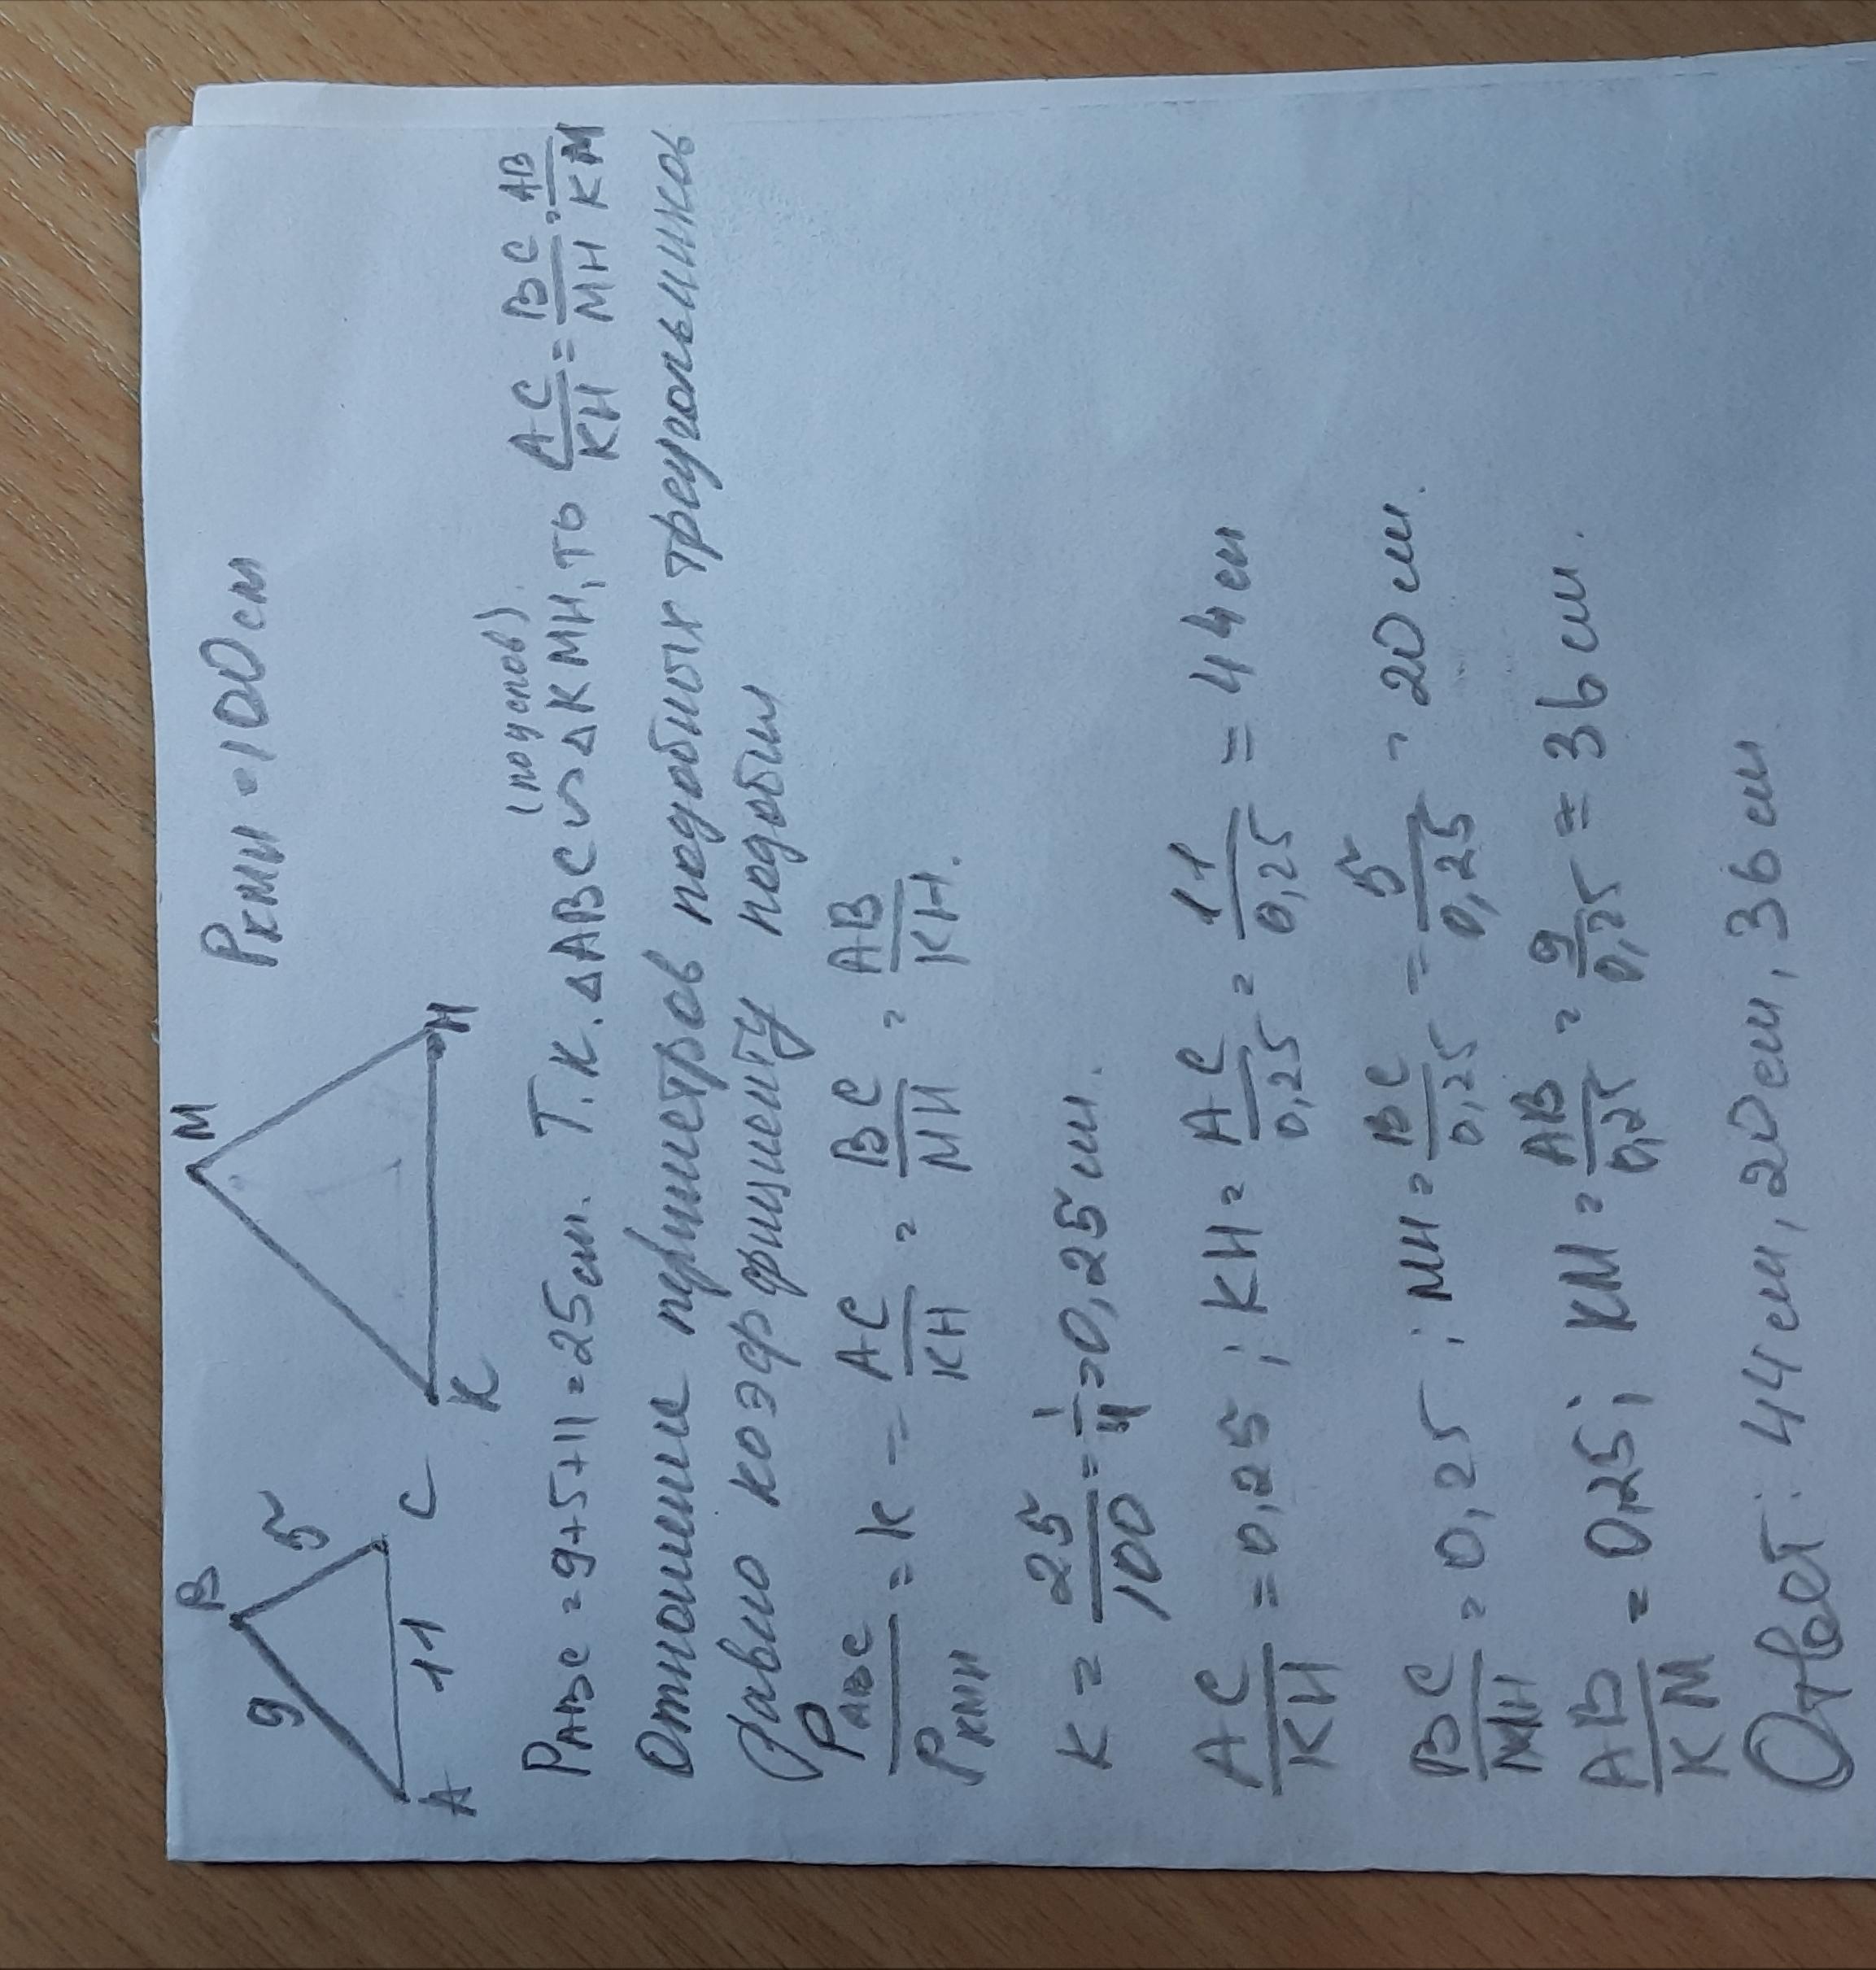 B M
9 5 Pкмн = 100 см
A 11 C K H
(по услов).
PABC = 9+5+11 = 25 см. Т.К. △ABC ∽ △KMH, то AC/KH = BC/MH, AB/KM
Отношение периметров подобных треугольников
равно коэффициенту подобия
PABC/PKMH = K = AC/KH = BC/MH = AB/KH.
K = 25/100 = 1/4 = 0,25 см.
AC/KH = 0,25 ; KH = AC/0,25 = 11/0,25 = 44 см
BC/MH = 0,25 ; MH = BC/0,25 = 5/0,25 = 20 см.
AB/KM = 0,25; KM = AB/0,25 = 9/0,25 = 36 см.
Ответ: 44 см, 20 см, 36 см